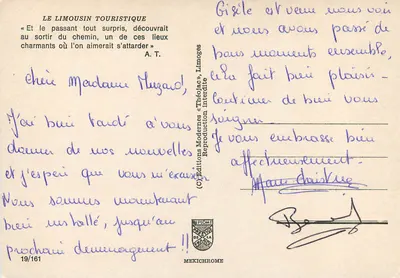 LE LIMOUSIN TOURISTIQUE
« Et le passant tout surpris, découvrait
au sortir du chemin, un de ces lieux
charmants où l'on aimerait s'attarder »
A. T.
Chère Madame
J'ai bien tardé à vous
donner de nos nouvelles
et j'espère que vous m'excusez
Nous sommes maintenant
bien installé, jusqu'au
prochain déménagement !!
19/161
(C) Editions Modernes «Théojac», Limoges
Reproduction interdite
MEXICHROME
Gisèle est venu nous voir
et nous avons passé de
bons moments ensemble,
cela fait bien plaisir.
Continuer de bien vous
soigner
Je vous embrasse bien
affectueusement.
Marie Christine